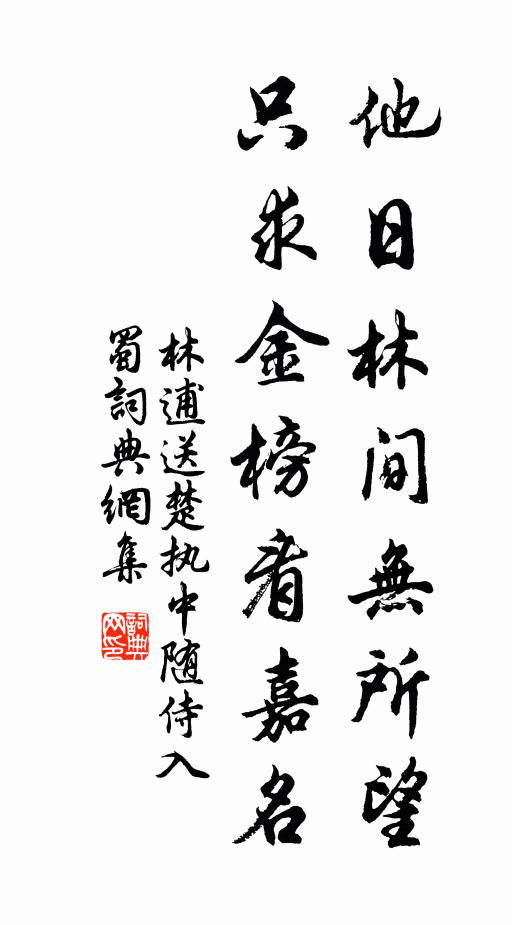 他日林间無所望
只求金榜看嘉名
林逋送楚执中随侍入
蜀詞典網集
詞典
网印